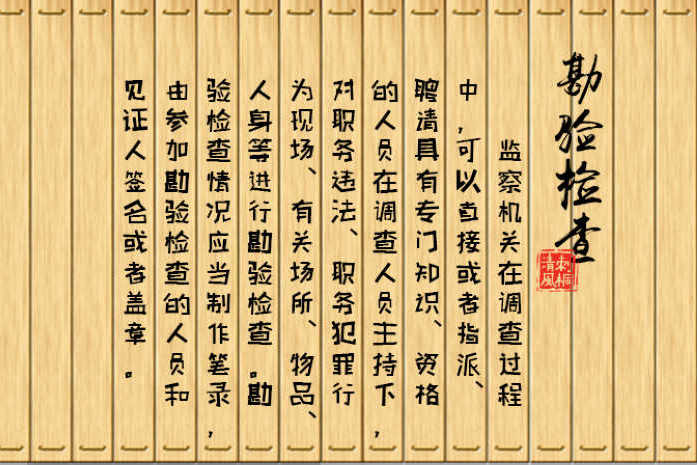 勘验检查
清风
监察机关在调查过程
中,可以直接或者指派、
聘请具有专门知识、资格
的人员在调查人员主持下,
对职务违法、职务犯罪行
为现场、有关场所、物品、
人身等进行勘验检查。勘
验检查情况应当制作笔录,
由参加勘验检查的人员和
见证人签名或者盖章。